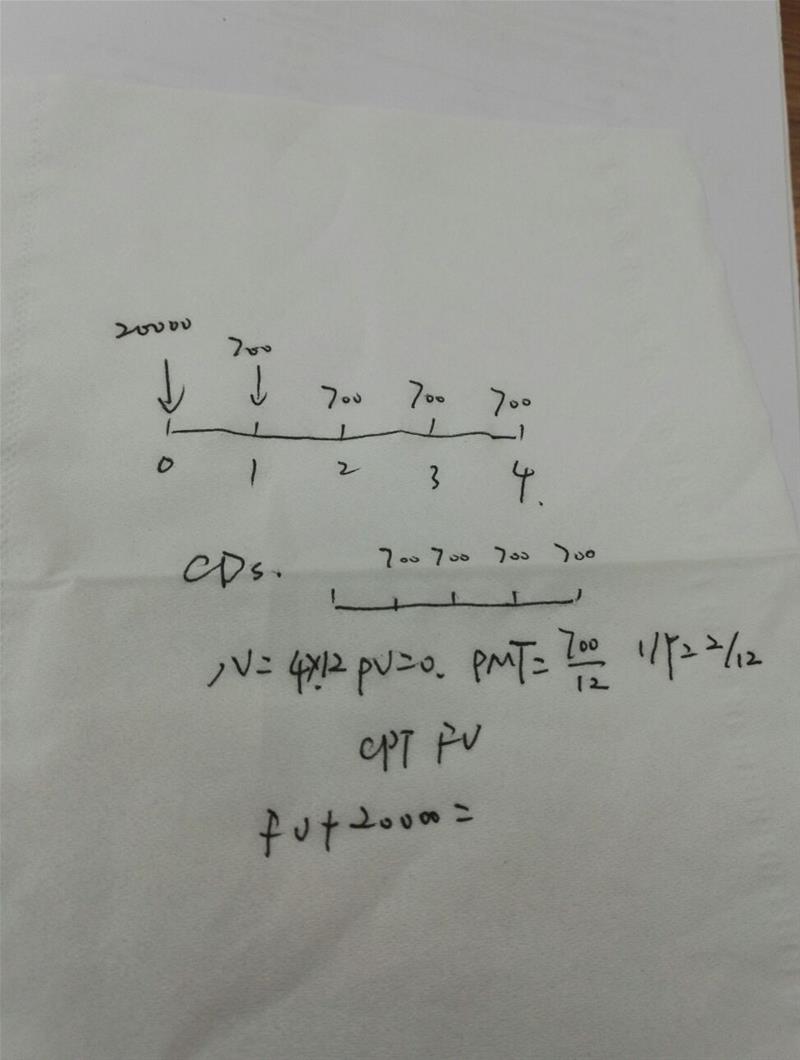 20000
700
700 700 700
0 1 2 3 4.
CDs. 700 700 700 700
N= 4×12 PV=0. PMT= 700/12 I/Y= 2/12
CPT FV
FV+20000=